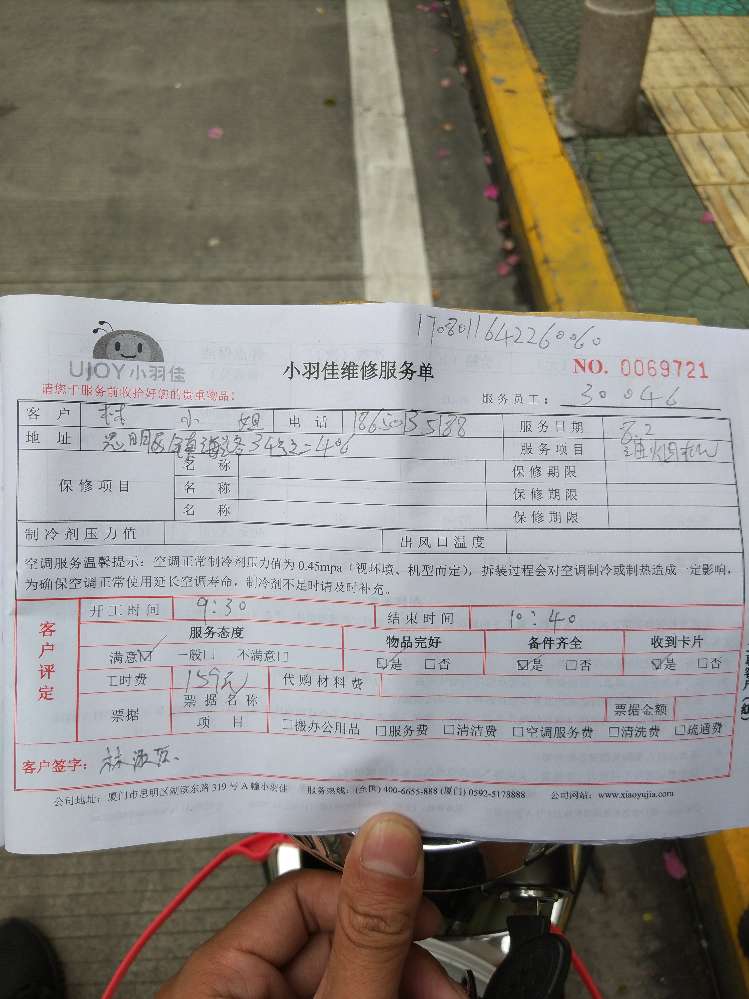 1708011642260060
UJOY小羽佳
小羽佳维修服务单
NO. 0069721
请您于服务前收拾好您的贵重物品!
服务员工: 30046
客户 林小姐 电话 服务日期 8.2
地址 思明区 服务项目
保修项目 名称 保修期限
名称 保修期限
名称 保修期限
制冷剂压力值 出风口温度
空调服务温馨提示:空调正常制冷剂压力值为0.45mpa(视环境、机型而定),拆装过程会对空调制冷或制热造成一定影响,
为确保空调正常使用延长空调寿命,制冷剂不足时请及时补充。
客户评定
开工时间 9:30 结束时间 10:40
服务态度 物品完好 备件齐全 收到卡片
满意☑ 一般□ 不满意□ ☑是 □否 ☑是 □否 ☑是 □否
工时费 159元 代购材料费
票据 票据名称 票据金额
项目 □搬办公用品 □服务费 □清洁费 □空调服务费 □清洗费 □疏通费
客户签字: 林
公司地址:厦门市思明区观音东路319号A幢小羽佳 服务热线:(全国)400-6655-888 (厦门)0592-5178888 公司网站:www.xiaoyujia.com